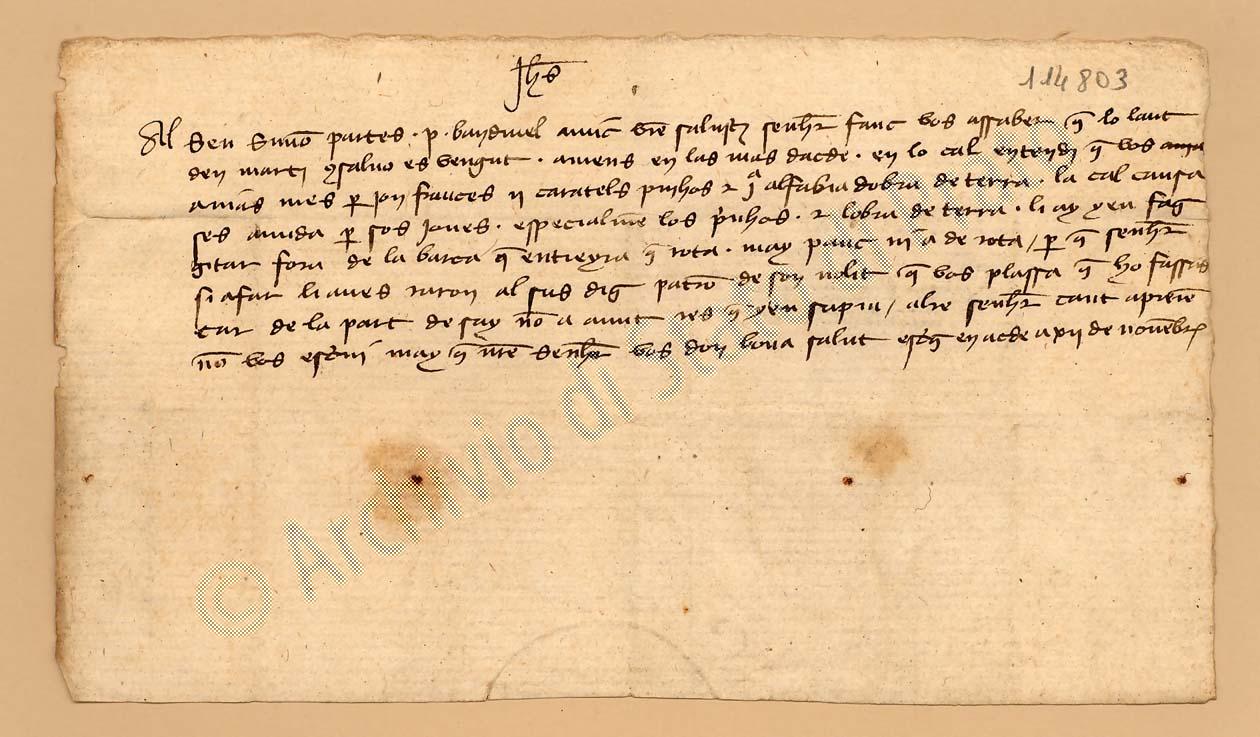 Jhs
114803
Al sen Simo partes . p . baudinel amic vre salustz senher fauc vos assaber q lo laut
den marti salvo es vengut . amens en las mas dacde . en lo cal entendi q vos
mes per Jon frances ii caratels pinhos z iª alfabia dobra de terra . la cal causa
ses avuda per sos Joves . especialme los pinhos . z lobra de terra . li ay yeu fag
gitar fora de la barca q entieyra q rota . may pauc ni a de rota / per q senher
si afar li aves razon al sus dig patro de son nolit q vos plassa q ho fassas
car de la part de say no a avut res q yeu sapia / alre senher cant apresen
no vos escrivi may q nre senher vos don bona salut escig en acde a xii de novembre
© Archivio di Stato di Prato